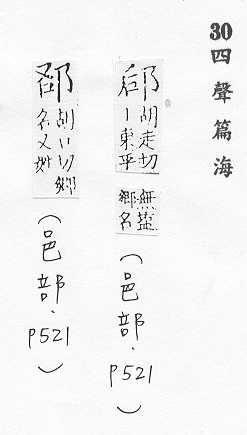 30 四聲篇海
郈
胡走切
丨東平
無鹽
鄉名
(邑部.P521)
胡口切鄉
名又姓
(邑部.P521)